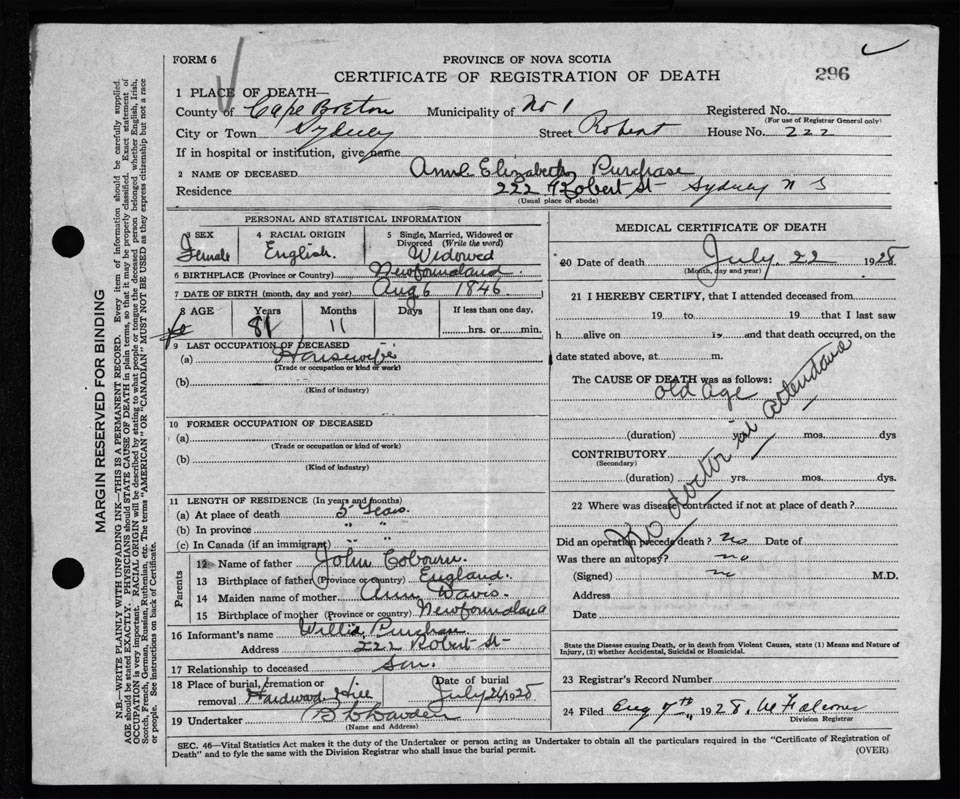 FORM 6
PROVINCE OF NOVA SCOTIA
CERTIFICATE OF REGISTRATION OF DEATH
296
1 PLACE OF DEATH—
County of Cape Breton Municipality of No 1 Registered No.
(For use of Registrar General only)
City or Town Sydney Street Robert House No. 222
If in hospital or institution, give name
2 NAME OF DECEASED Anne Elizabeth Purchase
Residence 222 Robert St- Sydney N S
(Usual place of abode)
PERSONAL AND STATISTICAL INFORMATION
3 SEX Female
4 RACIAL ORIGIN English.
5 Single, Married, Widowed or Divorced (Write the word) Widowed
6 BIRTHPLACE (Province or Country) Newfoundland.
7 DATE OF BIRTH (month, day and year) Aug 6 1846.
8 AGE Years 81 Months 11 Days If less than one day. hrs. or min.
9 LAST OCCUPATION OF DECEASED
(a) Housewife
(Trade or occupation or kind of work)
(b)
(Kind of industry)
10 FORMER OCCUPATION OF DECEASED
(a)
(Trade or occupation or kind of work)
(b)
(Kind of industry)
11 LENGTH OF RESIDENCE (In years and months)
(a) At place of death 5 Years.
(b) In province " "
(c) In Canada (if an immigrant) " "
Parents
12 Name of father John Cobourn.
13 Birthplace of father (Province or Country) England.
14 Maiden name of mother Ann Davis.
15 Birthplace of mother (Province or country) Newfoundland
16 Informant's name Willis Purchase
Address 222 Robert St-
17 Relationship to deceased Son.
18 Place of burial, cremation or removal Hardwood Hill
Date of burial July 24 1928
19 Undertaker
(Name and Address)
MEDICAL CERTIFICATE OF DEATH
20 Date of death July 22 1928
(Month, day and year)
21 I HEREBY CERTIFY, that I attended deceased from
19 to 19 that I last saw
h alive on 19 and that death occurred, on the
date stated above, at m.
The CAUSE OF DEATH was as follows:
old age
No doctor in attendance
(duration) yrs. mos. dys
CONTRIBUTORY
(Secondary)
(duration) yrs. mos. dys
22 Where was disease contracted if not at place of death?
Did an operation precede death? no Date of
Was there an autopsy? no
(Signed) M.D.
Address
Date
State the Disease causing Death, or in death from Violent Causes, state (1) Means and Nature of
Injury, (2) whether Accidental, Suicidal or Homicidal.
23 Registrar's Record Number
24 Filed Aug 7th 1928.
Division Registrar
SEC. 46—Vital Statistics Act makes it the duty of the Undertaker or person acting as Undertaker to obtain all the particulars required in the "Certificate of Registration of
Death" and to fyle the same with the Division Registrar who shall issue the burial permit. (OVER)
MARGIN RESERVED FOR BINDING
N.B.—WRITE PLAINLY WITH UNFADING INK—THIS IS A PERMANENT RECORD. Every item of information should be carefully supplied.
AGE should be stated EXACTLY. PHYSICIANS should STATE CAUSE OF DEATH in plain terms, so that it may be properly classified. Exact statement of
OCCUPATION is very important. RACIAL ORIGIN will be described by stating to what people or tongue the deceased person belonged whether English, Irish,
Scotch, French, German, Russian, Ruthenian, etc. The terms "AMERICAN" OR "CANADIAN" MUST NOT BE USED as they express citizenship but not a race
or people. See instructions on back of Certificate.